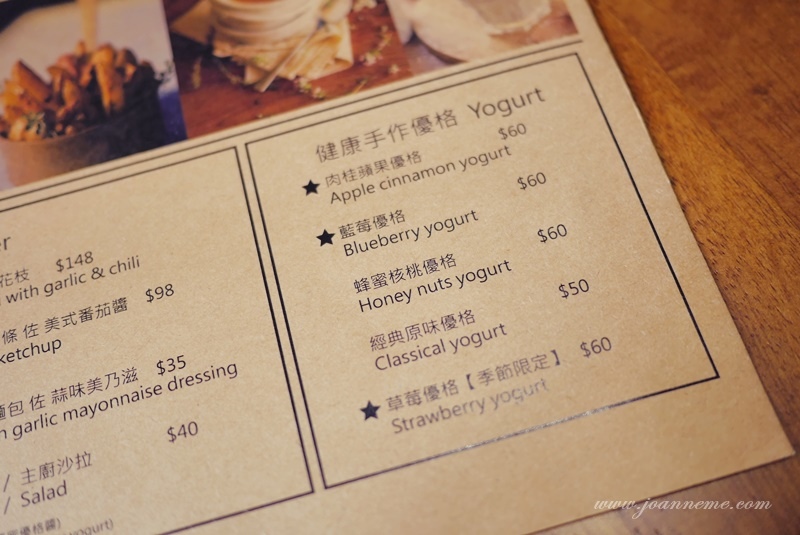 花枝 $148
with garlic & chili
條 佐 美式番茄醬 $98
ketchup
麵包 佐 蒜味美乃滋 $35
garlic mayonnaise dressing
$40
/ 主廚沙拉
/ Salad
優格醬)
yogurt)
健康手作優格 Yogurt
★ 肉桂蘋果優格 $60
Apple cinnamon yogurt
★ 藍莓優格 $60
Blueberry yogurt
蜂蜜核桃優格 $60
Honey nuts yogurt
經典原味優格 $50
Classical yogurt
★ 草莓優格【季節限定】 $60
Strawberry yogurt
www.joanneme.com